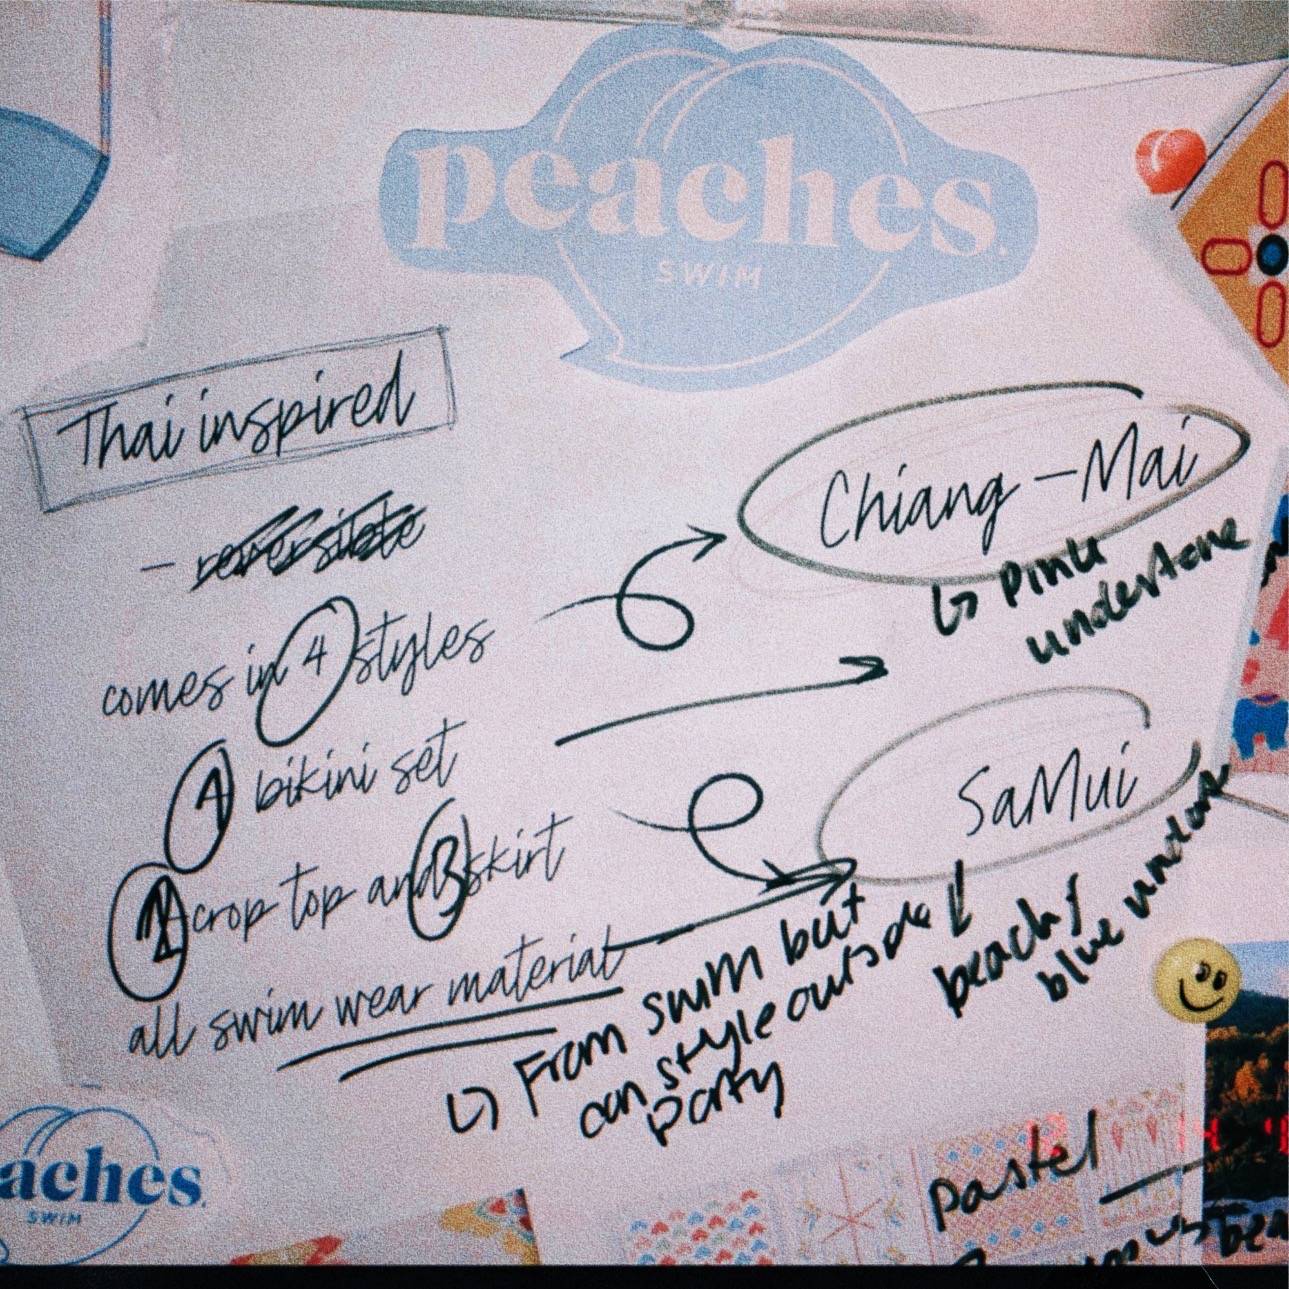 peaches.
SWIM
Thai inspired
- reversible
comes in 4 styles
1 bikini set
2 crop top and 3 skirt
all swim wear material
Chiang-Mai
↳ pink
undertone
SaMui
beachy
blue undertone
↳ From swim but
can style outside
party
pastel
aches.
SWIM